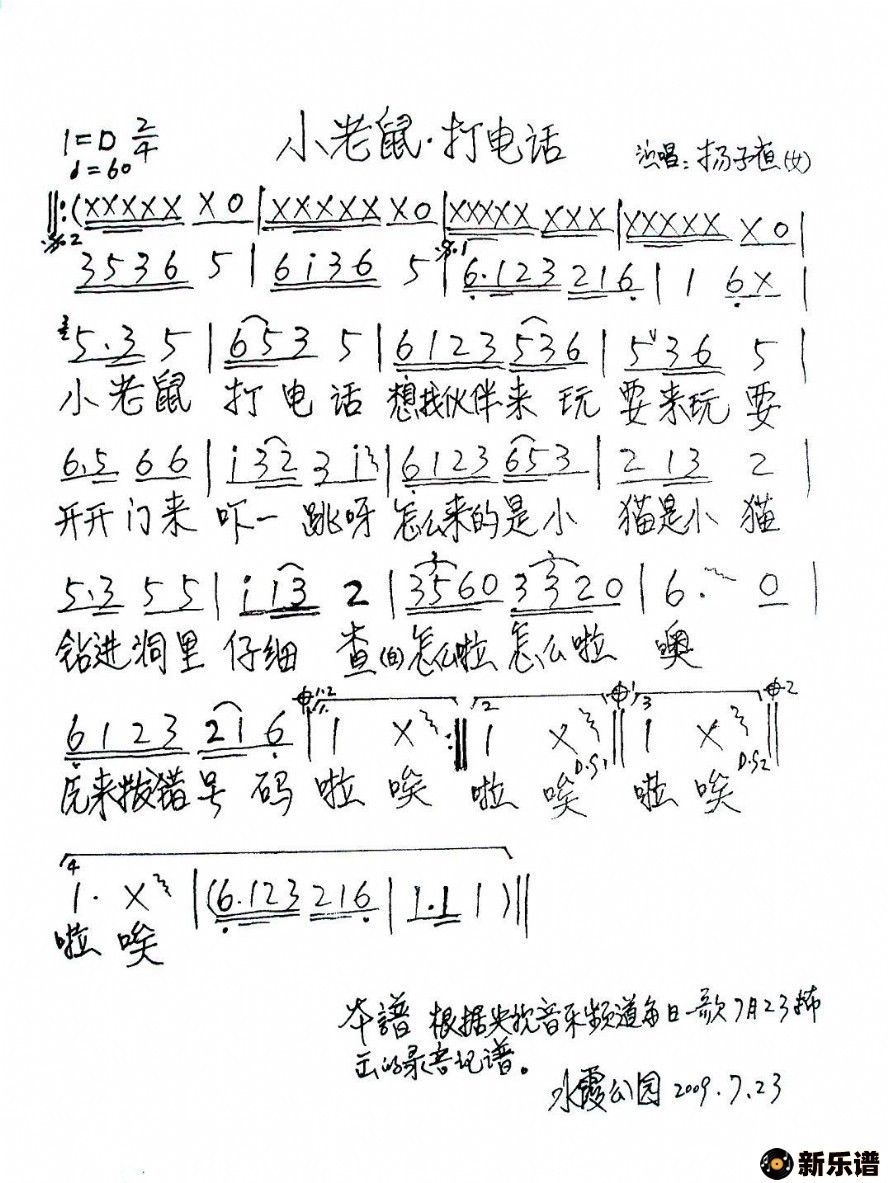 1=D 2/4 小老鼠·打电话 演唱:杨子直(女)
♩=60
‖:(XXXXX X0|XXXXX X0|XXXXX XXX|XXXXX X0|
𝄋.2 𝄋.1
3536 5|6i36 5|6.123 216|1 6X|
5.3 5|653 5|6123 536|5ˇ36 5|
小老鼠 打电话 想找伙伴来玩 要来玩要
6.5 66|i32 3 i3|6123 653|2 13 2|
开开门来 吓一跳呀 怎么来的是小 猫是小猫
5.3 55|i i3 2|3560 3320|6. 0|
钻进洞里 仔细查(白)怎么啦 怎么啦 噢
6123 216‖1 X:‖1 X‖1 X‖
1.2 1. 2 1 3 2
D.S1 D.S2
来拨错号码啦 唉 啦 唉 啦 唉
4
1. X|(6.123 216|1.1 1)‖
啦 唉
本譜根据央视音乐频道每日一歌7月23播
出的录音记谱。
水霞公园 2009.7.23
新乐谱